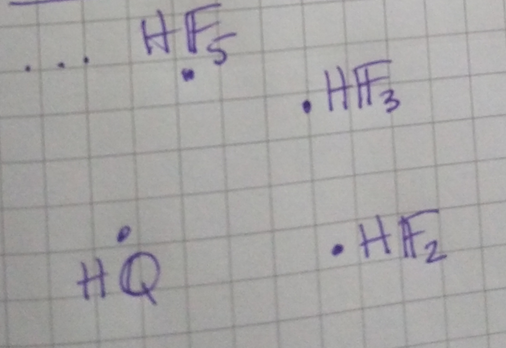 ... H𝔽₅
H𝔽₃
Hℚ
H𝔽₂